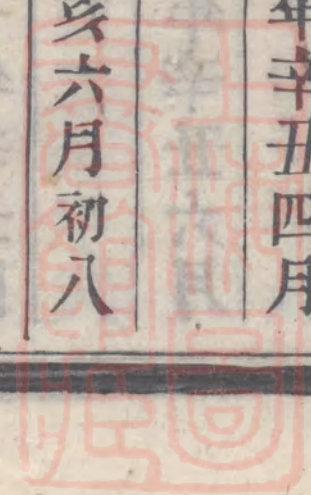 年辛丑四月
亥六月初八